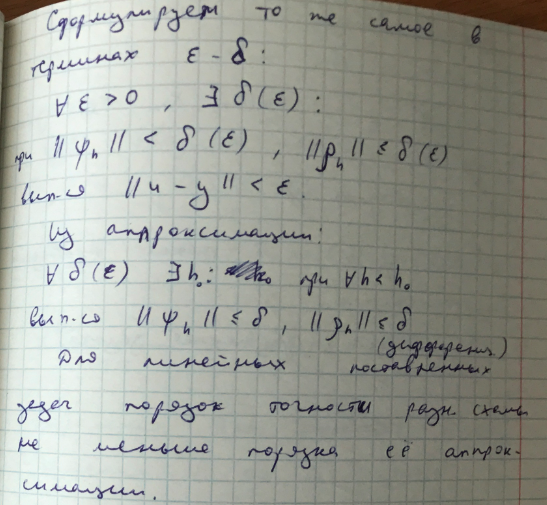 Сформулируем то же самое в
терминах ε - δ:
∀ ε > 0 , ∃ δ(ε) :
при ||ψₕ|| < δ(ε) , ||ρₕ|| ≤ δ(ε)
вып-ся ||u - y|| < ε.
Из аппроксимации:
∀ δ(ε) ∃ h₀: при ∀h < h₀
вып-ся ||ψₕ|| ≤ δ , ||ρₕ|| ≤ δ
(дифференц.)
Для линейных поставленных
задач порядок точности разн. схемы
не меньше порядка её аппрок-
симации.